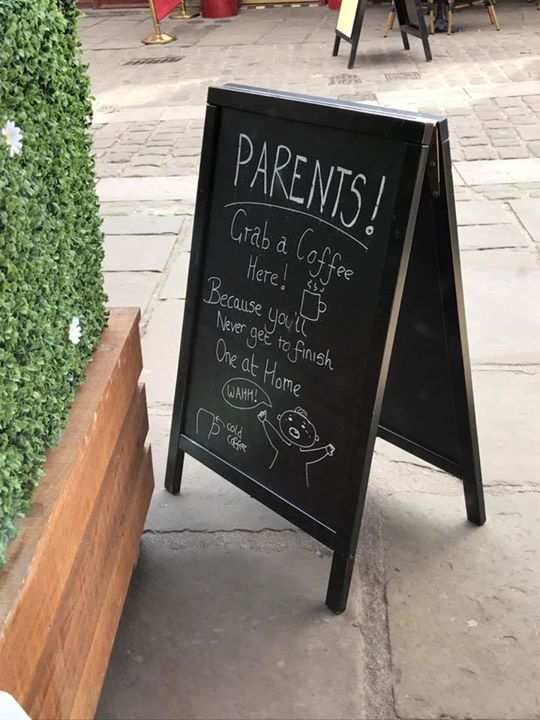 PARENTS!
Grab a Coffee
Here!
Because you'll
Never get to finish
One at Home
WAHH!
cold
coffee